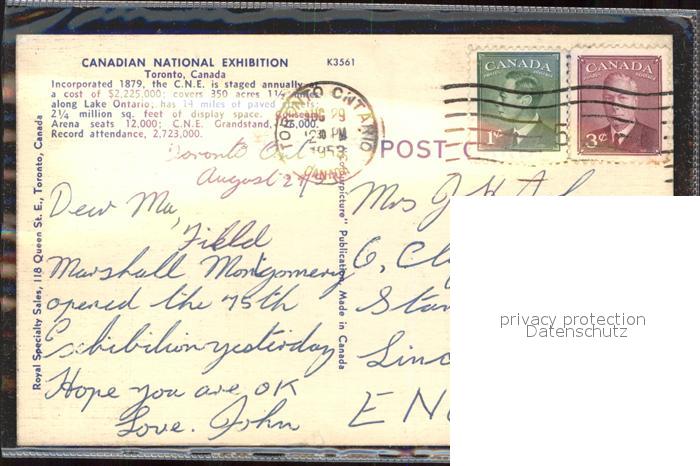 CANADIAN NATIONAL EXHIBITION K3561
Toronto, Canada
Incorporated 1879, the C.N.E. is staged annually at
a cost of $2,225,000; covers 350 acres 1½ miles
along Lake Ontario; has 14 miles of paved streets;
2¼ million sq. feet of display space. Coliseum
Arena seats 12,000; C.N.E. Grandstand,
Record attendance, 2,723,000.
TORONTO ONTARIO
AUG 29
PM
1953
CANADA
CANADA
POSTES POSTAGE
1¢
CANADA
POSTES POSTAGE
3¢
POST C
Toronto Ont
August 29/53
Dear Ma,
Field
Marshall Montgomery
opened the 75th
Exhibition yesterday
Hope you are OK
Love. John
Mrs J
6, Cl
Stam
Linc
EN
Royal Specialty Sales, 118 Queen St. E., Toronto, Canada
Publication, Made in Canada
privacy protection
Datenschutz